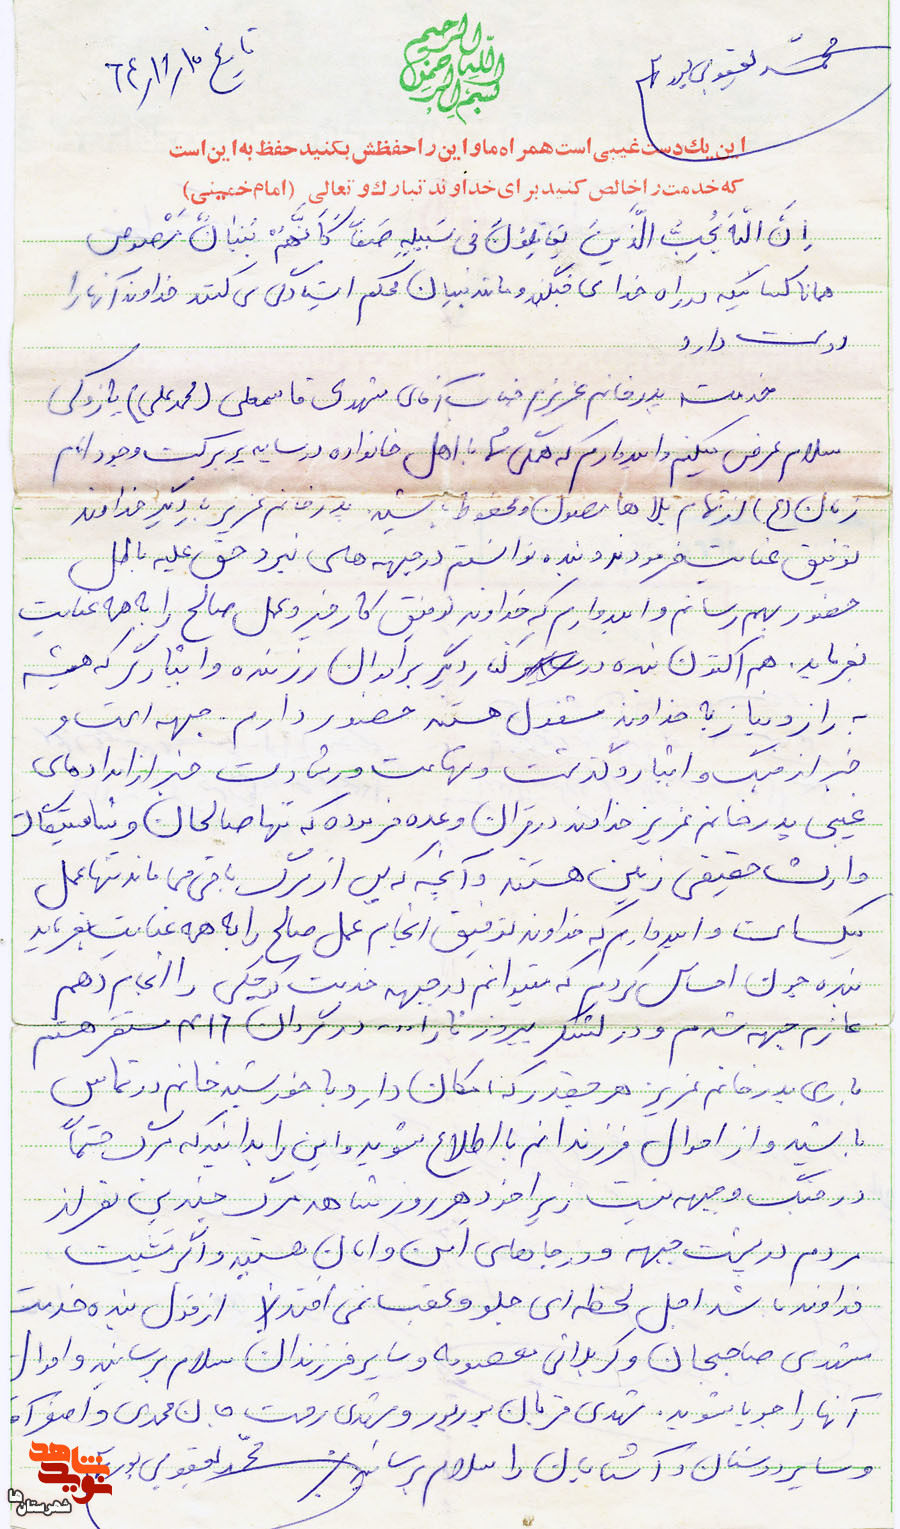 بسم الله الرحمن الرحیم
محمد یعقوبی پور
تاریخ ۶۴/۱۱/۱۰
این یك دست غیبی است همراه ما و این را حفظش بکنید حفظ به این است
که خدمت را خالص کنید برای خداوند تبارك و تعالی (امام خمینی)
اِنَّ اللهَ یُحِبُّ الَّذینَ یُقاتِلونَ فی سَبیلِهِ صَفّاً کَاَنَّهُمْ بُنیانٌ مَرْصوص
همانا کسانیکه در راه خدا می جنگند و مانند بنیان محکم ایستادگی می کنند خداوند آنها را
دوست دارد
خدمت پدر خانم عزیزم جناب آقای مشهدی قاسمعلی (محمدعلی) پازوکی
سلام عرض میکنم و امیدوارم که همگی شما با اهل خانواده در سایه پر برکت وجود امام
زمان (عج) از تمام بلاها مصون و محفوظ باشید. پدر خانم عزیز بار دیگر خداوند
توفیق عنایت فرمودند و بنده توانستم در جبهه های نبرد حق علیه باطل
حضور بهم رسانم و امیدوارم که خداوند توفیق کار خیر و عمل صالح را به همه عنایت
بفرماید. هم اکنون بنده در کنار دیگر برادران رزمنده و ایثارگر که همیشه
به راز و نیاز با خداوند مشغول هستند حضور دارم. جبهه است و
خبر از جنگ و ایثار و گذشت و شهامت و رشادت خبر از امدادهای
غیبی پدر خانم عزیز خداوند در قرآن وعده فرموده که تنها صالحان و شایستگان
وارث حقیقی زمین هستند و آنچه که پس از مرگ باقی می ماند تنها عمل
نیک است و امیدوارم که خداوند توفیق انجام عمل صالح را به همه عنایت بفرماید
بنده چون احساس کردم که میتوانم در جبهه خدمت کوچکی را انجام دهم
عازم جبهه شدم و در لشگر پیروز در گردان مستقر هستم
باری پدر خانم عزیز هر چقدر که امکان دارد با خورشید خانم در تماس
باشید و از احوال فرزندانم با اطلاع شوید و این را بدانید که مرگ حتماً
در جنگ و جبهه نیست زیرا خود هر روز شاهد مرگ چندین نفر از
مردم در پشت جبهه و در جاهای امن و امان هستید و اگر مشیت
خداوند باشد اجل لحظه ای جلو و عقب نمی افتد از قول بنده خدمت
مشهدی صاحبجان و کربلائی معصومه و سایر فرزندان سلام برسانید و احوال
آنها را جویا شوید. مشهدی قربان و مشهدی رحمت و اصغر آقا
و سایر دوستان و آشنایان را سلام برسانید محمد یعقوبی پور
نوید شاهد
شهرستان ها